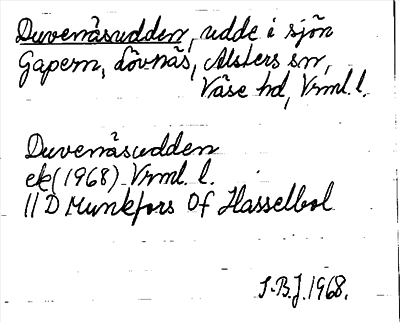 Duvenäsudden, udde i sjön
Gapern, Lövnäs, Alsters sn,
Väse hd, Vrml. l.
Duvenäsudden
ek (1968) Vrml. l.
11 D Munkfors Of Hasselbol
S.B.J. 1968.